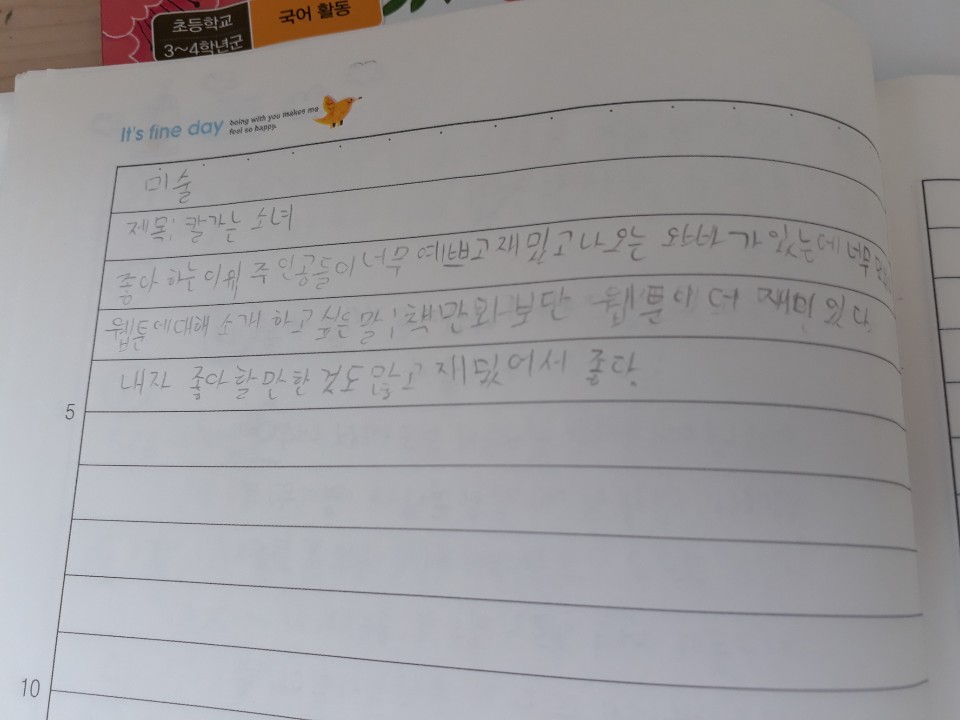 초등학교
3~4학년군
국어 활동
It's fine day
being with you makes me
feel so happy.
미술
제목: 칼가는 소녀
좋아 하는이유 주인공들이 너무 예쁘고 재밌고 나오는 가 있는데 너무
웹툰에대해 소개 하고 싶은말: 책만화 보단 웹툰이 더 재미 있다.
내자 좋아할만한 것도 많고 재밌어서 좋다.
5
10